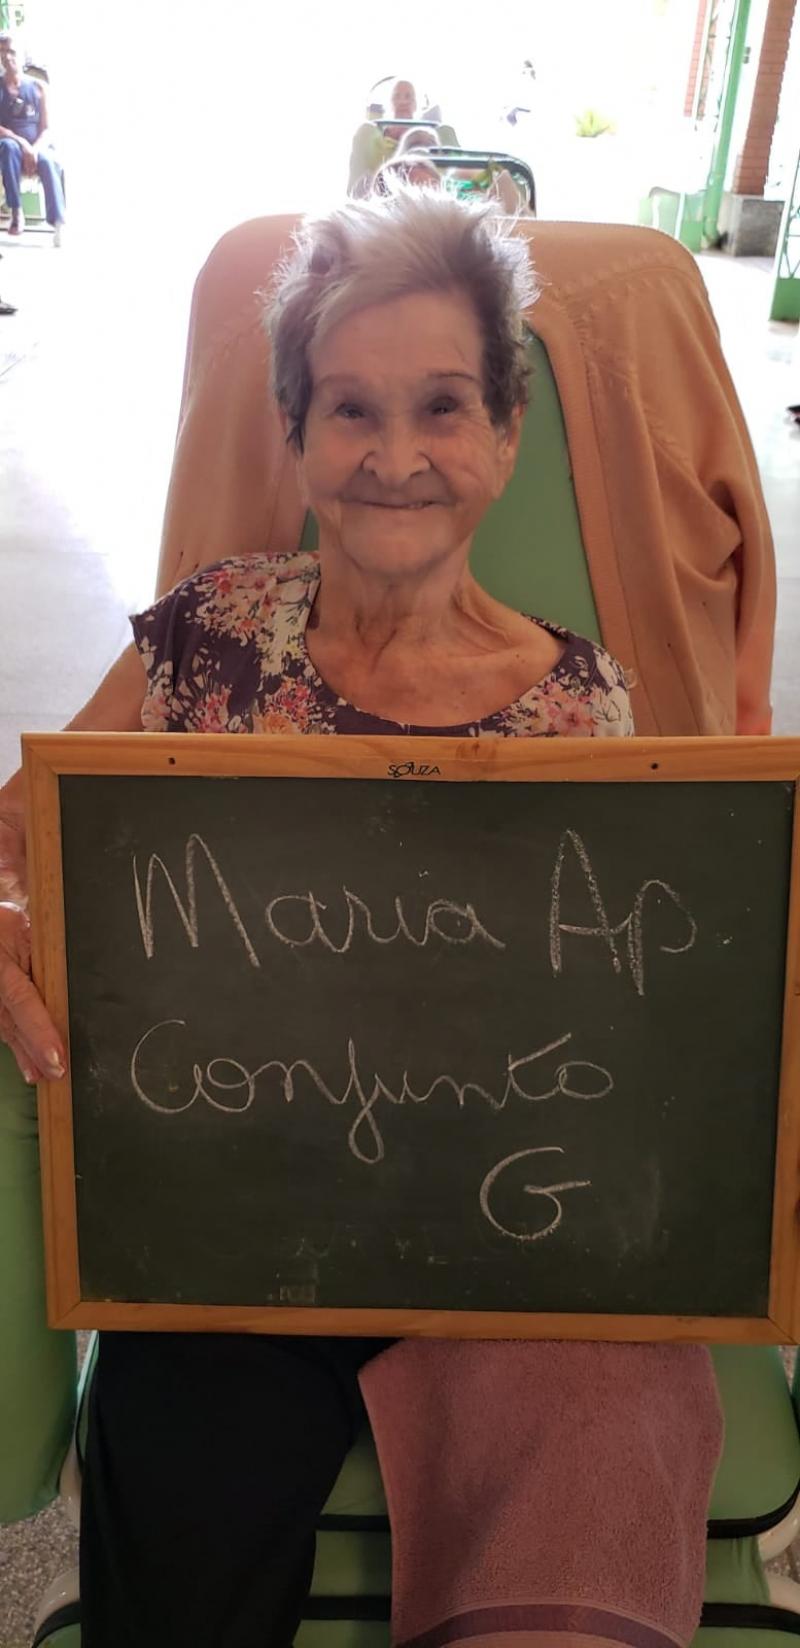 SOUZA
Maria Ap
Conjunto
G